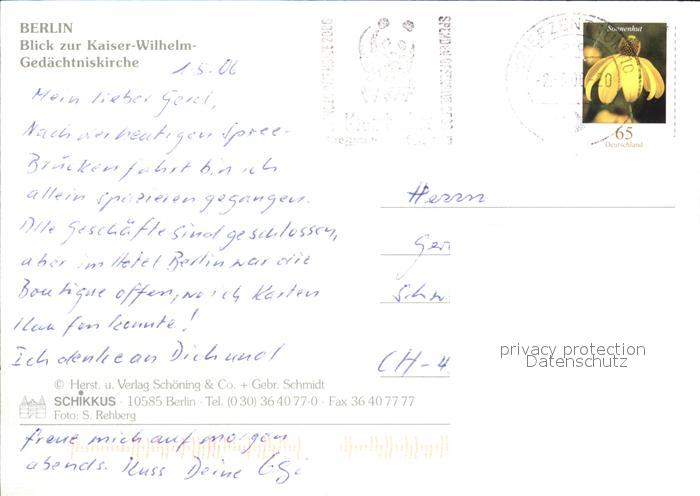 BERLIN
Blick zur Kaiser-Wilhelm-
Gedächtniskirche
1.5.06
Mein lieber Gerd,
Nach der heutigen Spree-
Brückenfahrt bin ich
allein spazieren gegangen.
Alle Geschäfte sind geschlossen,
aber im Hotel Berlin war die
Boutique offen, wo ich Karten
kaufen konnte!
Ich denke an Dich und
© Herst. u. Verlag Schöning & Co. + Gebr. Schmidt
SCHIKKUS · 10585 Berlin · Tel. (0 30) 36 40 77-0 · Fax 36 40 77 77
Foto: S. Rehberg
freue mich auf morgen
abends. Kuss Deine
Sonnenhut
65
Deutschland
BRIEFZENTRUM
Herrn
Ger
Schw
CH-4
privacy protection
Datenschutz